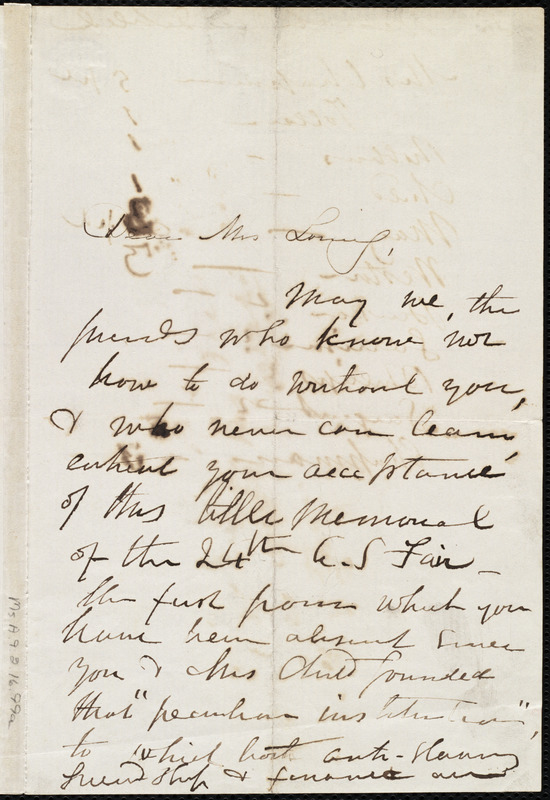 Dear Mrs Loring,
May we, the
friends who know not
how to do without you,
& who never can learn,
entreat your acceptance
of this little Memorial
of the 24th A. S Fair –
the first from which you
have been absent since
you & Mrs Child founded
that "peculiar institution",
to which both anti-slavery
friendship & finance are
Ms A 9 2 16.99a